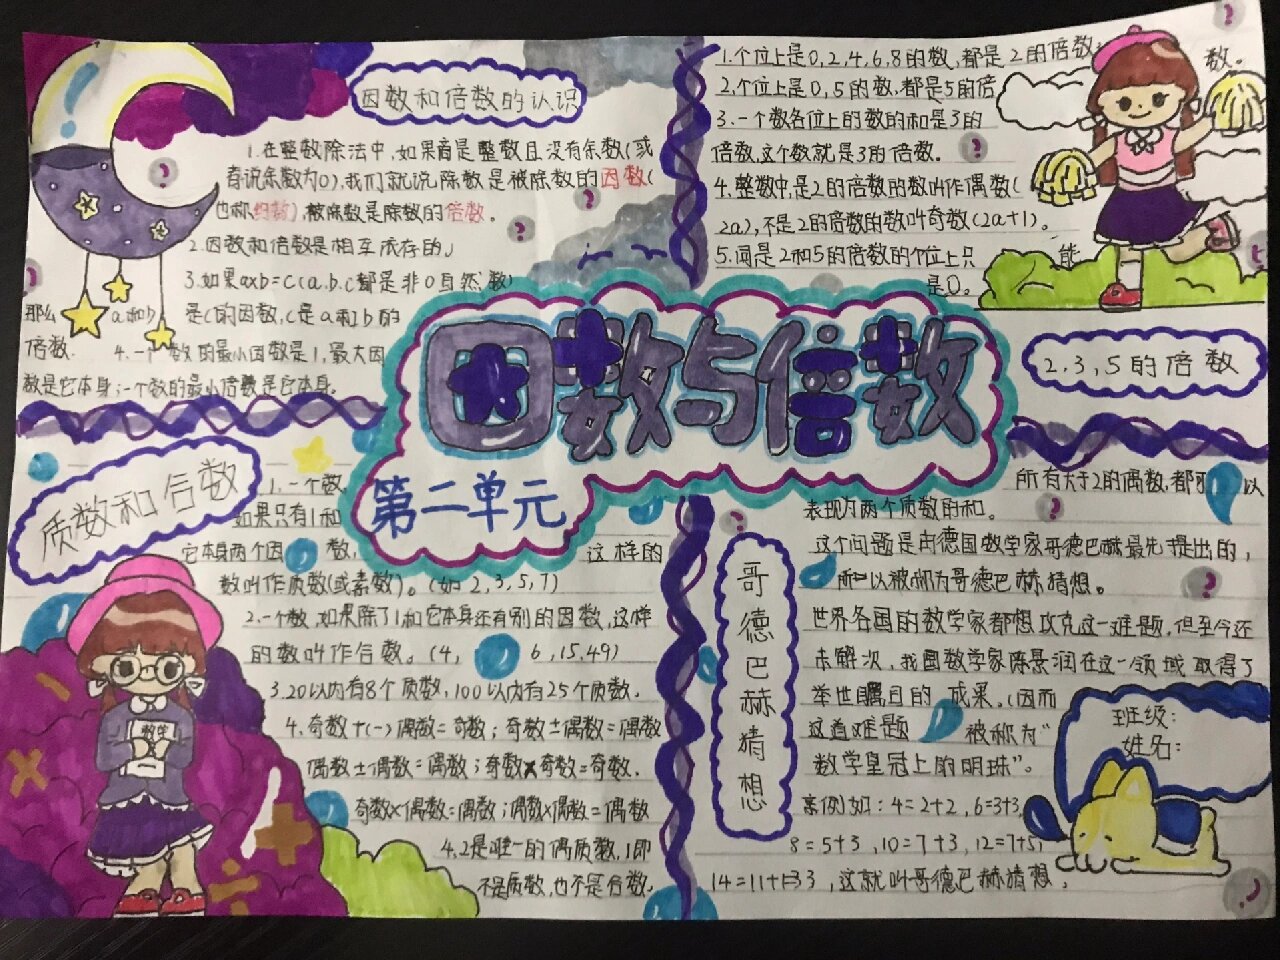 因数和倍数的认识
1.在整数除法中,如果商是整数且没有余数(或
者说余数为0),我们就说除数是被除数的因数(
也称约数),被除数是除数的倍数。
2.因数和倍数是相互依存的」
3.如果axb=c(a.b.c都是非0自然数)
那么 a和b 是c的因数,c是a和b的
倍数. 4.一个数的最小因数是1,最大因
数是它本身;一个数的最小倍数是它本身.
1.个位上是0,2,4,6,8的数,都是2的倍数,
数。
2.个位上是0,5的数.都是5的倍
3.一个数各位上的数的和是3的
倍数,这个数就是3的倍数。
4.整数中,是2的倍数的数叫作偶数(
2a),不是2的倍数的数叫奇数(2a+1)。
5.同是2和5的倍数的个位上只 能
是0。
2.3,5的倍数
因数与倍数
第二单元
质数和合数
1.一个数,
如果只有1和
它本身两个因 数, 这样的
数叫作质数(或素数)。(如2,3,5,7)
2.一个数,如果除了1和它本身还有别的因数,这样
的数叫作合数。(4, 6,15,49)
3.20以内有8个质数,100以内有25个质数.
4.奇数+(-)偶数=奇数;奇数±偶数=偶数
偶数±偶数=偶数;奇数×奇数=奇数.
奇数×偶数=偶数;偶数×偶数=偶数
4.2是唯一的偶质数,1即
不是质数,也不是合数,
数学
哥德巴赫猜想
所有大于2的偶数,都可 以
表现为两个质数的和。
这个问题是由德国数学家哥德巴赫最先提出的,
所以被称为哥德巴赫猜想。
世界各国的数学家都想攻克这一难题,但至今还
未解决,我国数学家陈景润在这一领域取得了
举世瞩目的成果。(因而
这道难题 被称为“
数学皇冠上的明珠”。
例如:4=2+2,6=3+3,
8=5+3,10=7+3,12=7+5,
14=11+3,这就叫哥德巴赫猜想,
班级:
姓名: